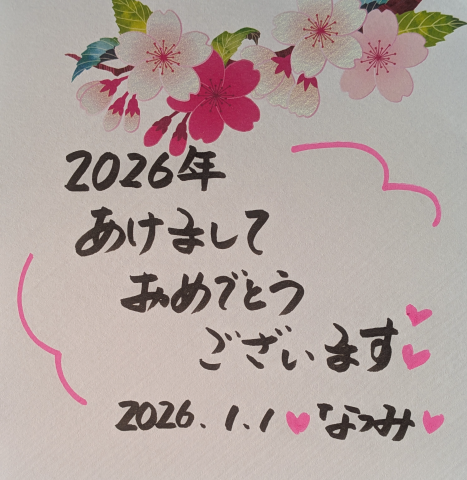 2026年
あけまして
おめでとう
ございます
2026.1.1 なつみ